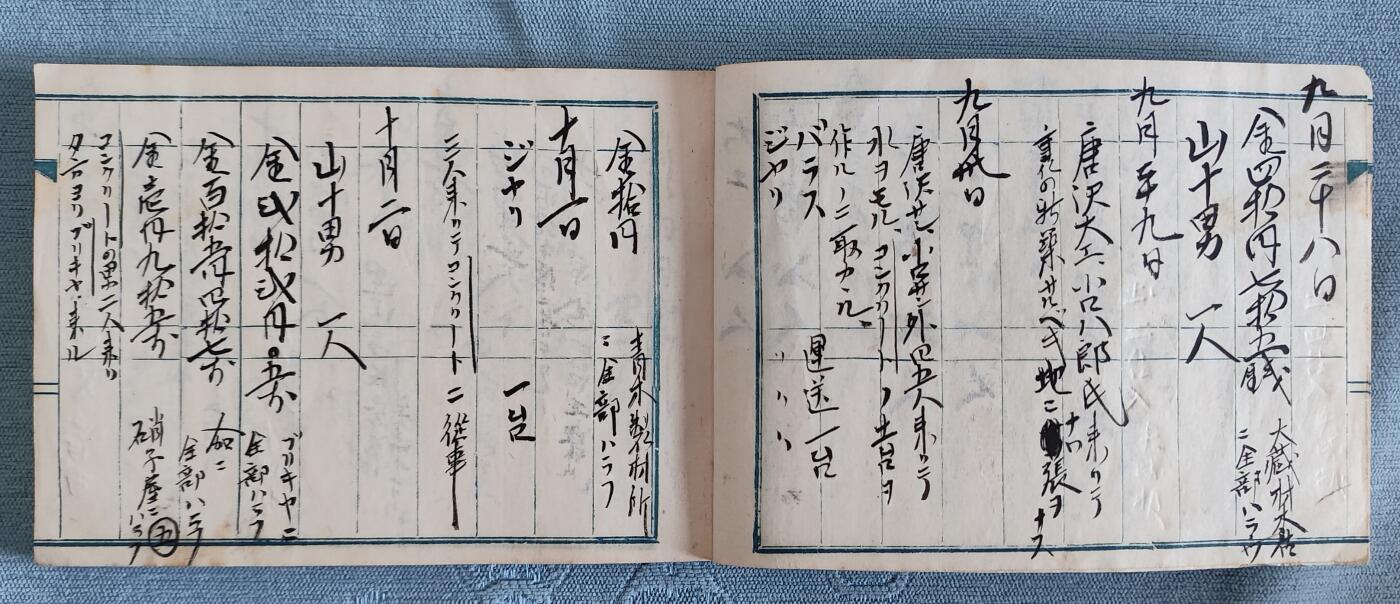 九月二十八日
金四拾円七拾五銭 大蔵材木店
ニ全部ハラウ
山十男 一人
九月二十九日
唐沢大工、小口八郎氏来リテ
事化の新築サルベキ地ニナワ張ヲナス
九月卅日
唐沢サン小字外四五人来リテ
水ヲモル、コンクリートノ土台ヲ
作ルノニ取カカル、
バラス 運送一台
ジャリ 〃 〃 〃
金拾円 青木製材所
ニ全部ハラフ
十月一日
ジャリ 一台
二人来リテコンクリートニ従事
十月二日
山十男 一人
金弐拾弐円〇五 ブリキヤニ
全部ハラフ
金百拾四拾七 ニ
全部ハラフ
金壱円九拾五 硝子屋ニハラフ
コンクリートの男二人来リ
夕方ヨリブリキヤ来ル